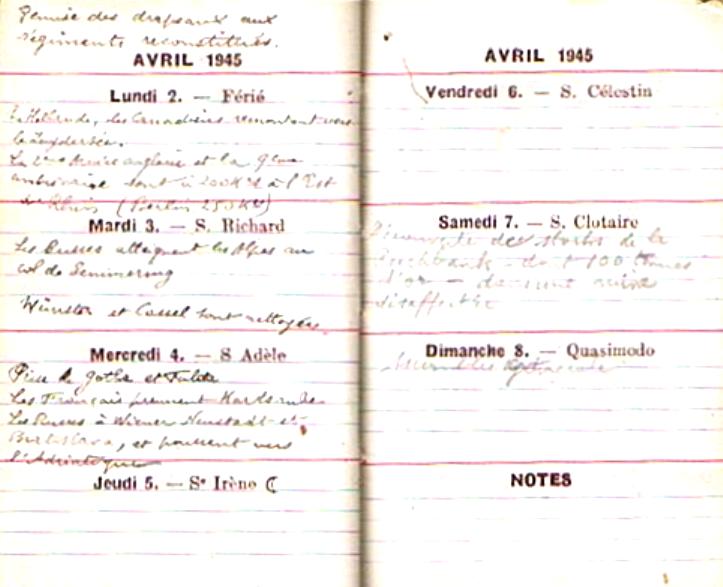 Remise des drapeaux aux
régiments reconstitués.
AVRIL 1945
Lundi 2. — Férié
Hollande, les Canadiens remontent vers
le Zuyderzée.
La 2ème Armée anglaise et la 9ème
américaine sont à 200 Kms à l'Est
du Rhin (Berlin 250 Km)
Mardi 3. — S. Richard
Les Russes atteignent les Alpes au
col de Semmering
Münster et Cassel sont nettoyés.
Mercredi 4. — S Adèle
Prise de Gotha et Fulda
Les Français prennent Karlsruhe
Les Russes à Wiener Neustadt et
Bratislava, et poussent vers
l'Adriatique
Jeudi 5. — Sᵉ Irène ☾
AVRIL 1945
Vendredi 6. — S. Célestin
Samedi 7. — S. Clotaire
Découverte des stocks de la
Reichbank - dont 100 tonnes
d'or - dans une mine
désaffectée
Dimanche 8. — Quasimodo
NOTES